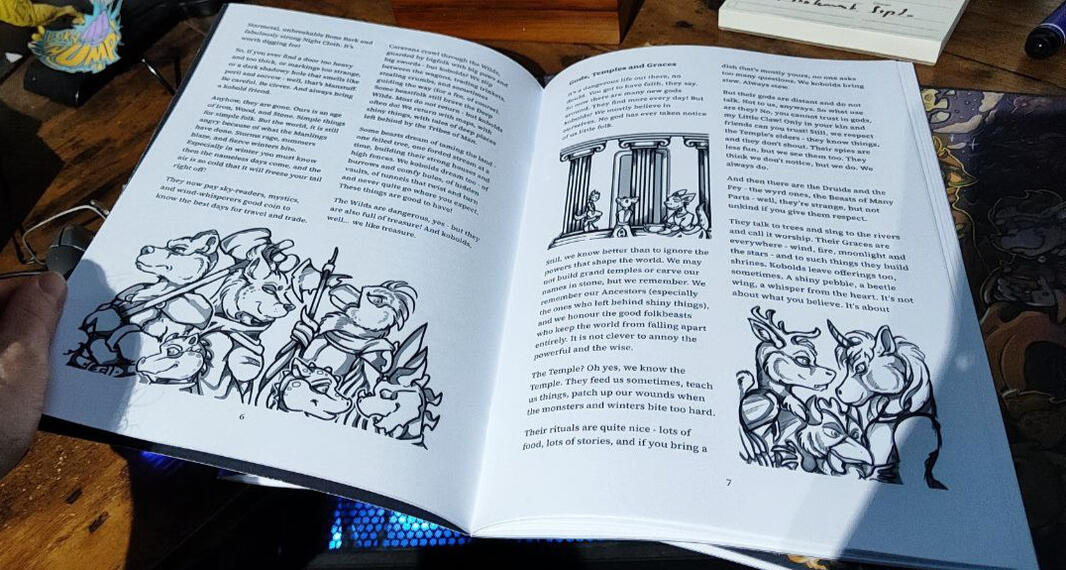 Starmetal, unbreakable Bone Bark and
fabulously strong Night Cloth. It's
worth digging for!
So, if you ever find a door too heavy
and too thick, or markings too strange,
or a dark shadowy hole that smells like
peril and sorrow - well, that's Manstuff.
Be careful. Be clever. And always bring
a kobold friend.
Anyhow, they are gone. Ours is an age
of Iron, Wood, and Stone. Simple things
for simple folk. But the world, it is still
angry because of what the Manlings
have done. Storms rage, summers
blaze, and fierce winters bite.
Especially in winter you must know
then the nameless days come, and the
air is so cold that it will freeze your tail
right off!
They now pay sky-readers, mystics,
and wind-whisperers good coin to
know the best days for travel and trade.
Caravans crawl through the Wilds,
guarded by bigfolk with big paws and
big swords - but kobolds? We slip
between the wagons, trading trinkets,
stealing crumbs, and sometimes
guiding the way (for a fee, of course).
Some beastfolk still brave the Deeper
Wilds. Most do not return - but kobolds
often do! We return with maps, with
shiny things, with tales of deep places
left behind by the Tribes of Man.
Some hearts dream of taming the land -
one felled tree, one forded stream at a
time, building their strong houses and
high fences. We kobolds dream too - of
burrows and comfy holes, of hidden
vaults, of tunnels that twist and turn
and never quite go where you expect.
These things are good to have!
The Wilds are dangerous, yes - but they
are also full of treasure! And kobolds,
well... we like treasure.
6
Gods, Temples and Graces
It's a dangerous life out there, no
doubt. You got to have faith, they say.
so now there are many new gods
They find more every day! But
kobolds? We mostly believe in
ourselves. No god has ever taken notice
of us little folk.
Still, we know better than to ignore the
powers that shape the world. We may
not build grand temples or carve our
names in stone, but we remember. We
remember our Ancestors (especially
the ones who left behind shiny things),
and we honour the good folkbeasts
who keep the world from falling apart
entirely. It is not clever to annoy the
powerful and the wise.
The Temple? Oh yes, we know the
Temple. They feed us sometimes, teach
us things, patch up our wounds when
the monsters and winters bite too hard.
Their rituals are quite nice - lots of
food, lots of stories, and if you bring a
dish that's mostly yours, no one asks
too many questions. We kobolds bring
stew. Always stew.
But their gods are distant and do not
talk. Not to us, anyways. So what use
are they? No, you cannot trust in gods,
my little Claw! Only in your kin and
friends can you trust! Still, we respect
the Temple's elders - they know things,
and they don't shout. Their spies are
less fun, but we see them too. They
think we don't notice, but we do. We
always do.
And then there are the Druids and the
Fey - the wyrd ones, the Beasts of Many
Parts - well, they're strange, but not
unkind if you give them respect.
They talk to trees and sing to the rivers
and call it worship. Their Graces are
everywhere - wind, fire, moonlight and
the stars - and to such things they build
shrines. Kobolds leave offerings too,
sometimes. A shiny pebble, a beetle
wing, a whisper from the heart. It's not
about what you believe. It's about
7
JUMP